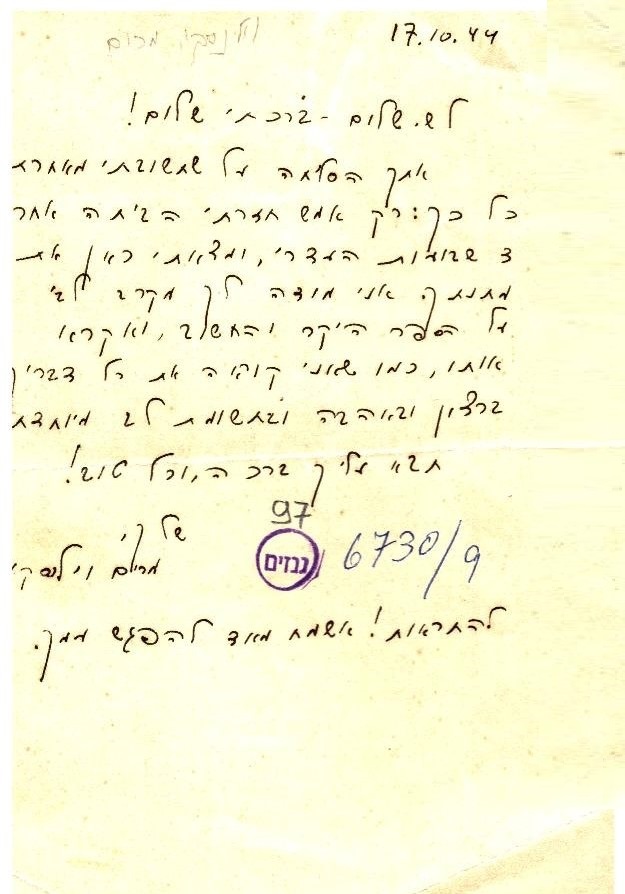 17.10.44
וילנסקי, מרים
לש. שלום - ברכתי שלום!
אתך הסליחה על שתשובתי מאחרת
כל כך: רק אמש חזרתי הביתה אחר
3 שבועות העדרי, ומצאתי כאן את
מתנתך. אני מודה לך מקרב לבי
על הספר היקר והחשוב, ואקרא
אותו, כמו שאני קוראה את כל דבריך
ברצון ובאהבה ובתשומת לב מיוחדת
תבא עליך ברכה, וכל טוב!
שלך,
מרים וילנסקי
97
גנזים
6730/9
להתראות! אשמח מאד להפגש עמך.